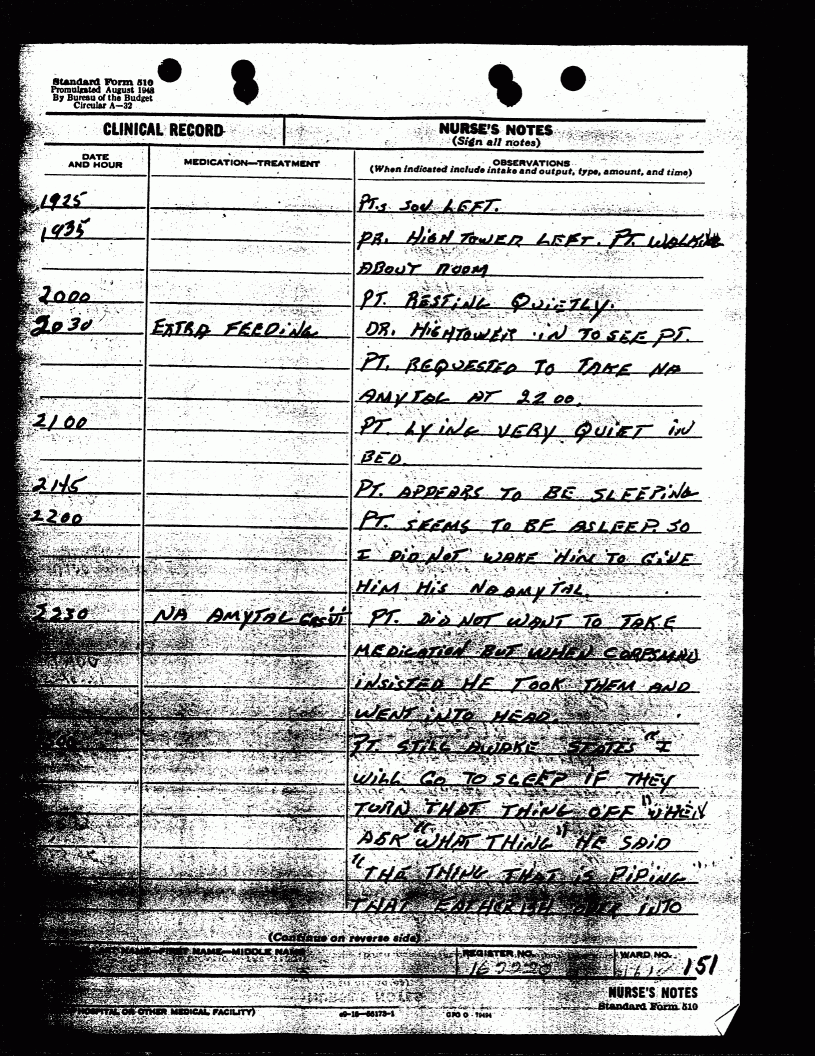 Standard Form 510
Promulgated August 1948
By Bureau of the Budget
Circular A—32
CLINICAL RECORD
NURSE'S NOTES
(Sign all notes)
DATE AND HOUR
MEDICATION—TREATMENT
OBSERVATIONS
(When indicated include intake and output, type, amount, and time)
1925 PT.s SON LEFT.
1935 DR. HIGHTOWER LEFT. PT. WALKING
ABOUT ROOM
2000 PT. RESTING QUIETLY.
2030 EXTRA FEEDING DR. HIGHTOWER IN TO SEE PT.
PT. REQUESTED TO TAKE NA
AMYTAL AT 2200.
2100 PT. LYING VERY QUIET IN
BED.
2145 PT. APPEARS TO BE SLEEPING
2200 PT. SEEMS TO BE ASLEEP. SO
I DID NOT WAKE HIM TO GIVE
HIM HIS NA AMYTAL.
2230 NA AMYTAL PT. DID NOT WANT TO TAKE
MEDICATION BUT WHEN CORPSMAN
INSISTED HE TOOK THEM AND
WENT INTO HEAD.
PT. STILL AWAKE STATES "I
WILL GO TO SLEEP IF THEY
TURN THAT THING OFF" WHEN
ASK "WHAT THING" HE SAID
"THE THING THAT IS PIPING
THAT INTO
(Continue on reverse side)
NAME—FIRST NAME—MIDDLE NAME
REGISTER NO.
WARD NO.
151
NURSE'S NOTES
Standard Form 510
HOSPITAL OR OTHER MEDICAL FACILITY)